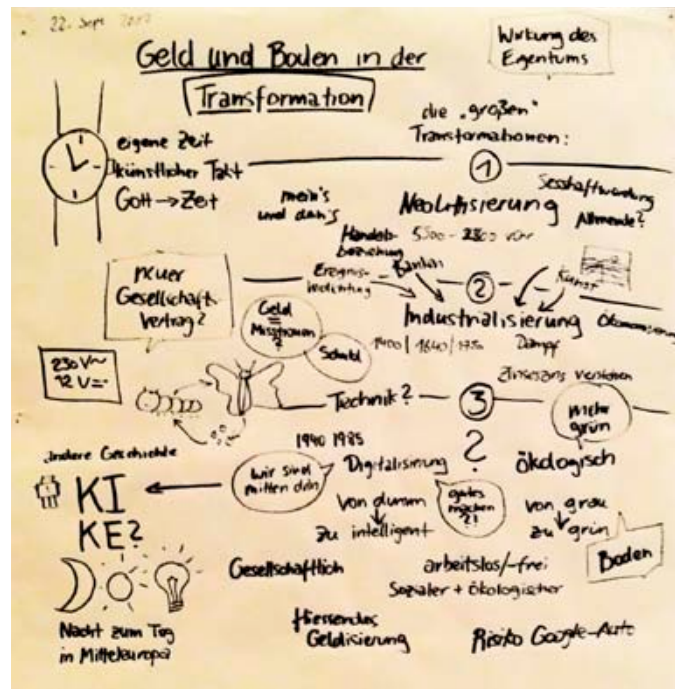 22. Sept.
Geld und Boden in der
Transformation
Wirkung des
Eigentums
eigene Zeit
künstlicher Takt
Gott → Zeit
die „großen"
Transformationen:
1
mein's
und dein's
Neolithisierung
Sesshaftwerdung
Allmende?
Handels-
beziehung
5500 - 2300 v Chr
neuer
Gesellschaft-
vertrag?
Ereignis-
verdichtung
Banken
2
Kunst
Geld
=
Misstrauen
?
Schuld
Industrialisierung
Ökonomisierung
1400 / 1640 / 1750
Dampf
230 V~
12 V
Zinseszins verstehen
Technik?
3
mehr
grün
1940 1985
?
Andere Geschichte
wir sind
mitten drin
Digitalisierung
ökologisch
KI
KE?
gutes
machen
?!
von dumm
zu intelligent
von grau
zu grün
Boden
Gesellschaftlich
arbeitslos/-frei
Sozialer + ökologischer
Nacht zum Tag
in Mitteleuropa
fliessendes
Geldisierung
Risiko Google-Auto